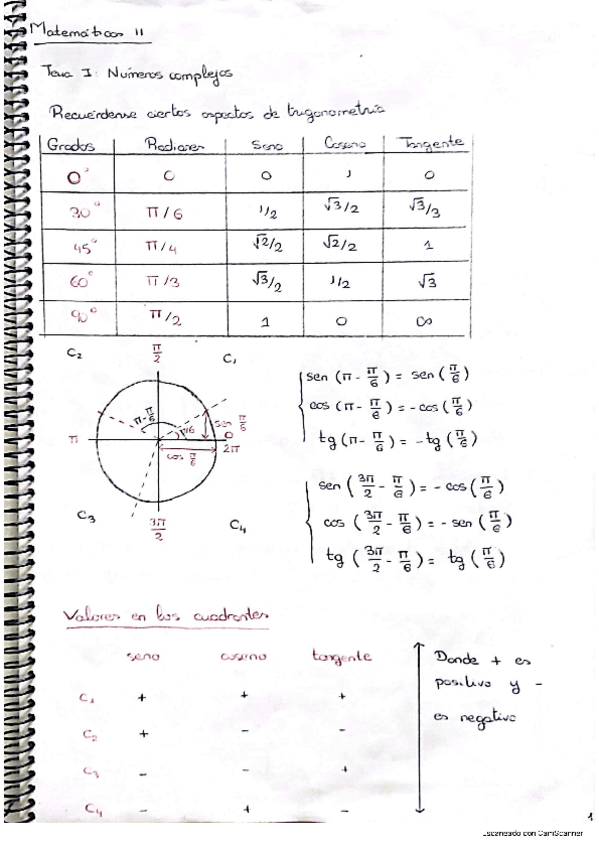 Matemáticas II
Tema I: Números complejos
Recuérdense ciertos aspectos de trigonometría
Grados Radianes Seno Coseno Tangente
0° 0 0 1 0
30° π/6 1/2 √3/2 √3/3
45° π/4 √2/2 √2/2 1
60° π/3 √3/2 1/2 √3
90° π/2 1 0 ∞
C₂ π/2 C₁
sen (π - π/6) = sen (π/6)
cos (π - π/6) = -cos (π/6)
tg (π - π/6) = -tg (π/6)
π - π/6 π/6 sen π/6
π cos π/6 0 2π
C₃ 3π/2 C₄
sen (3π/2 - π/6) = - cos (π/6)
cos (3π/2 - π/6) = - sen (π/6)
tg (3π/2 - π/6) = tg (π/6)
Valores en los cuadrantes
seno coseno tangente
C₁ + + +
C₂ + - -
C₃ - - +
C₄ - + -
Donde + es
positivo y -
es negativo
1
Escaneado con CamScanner